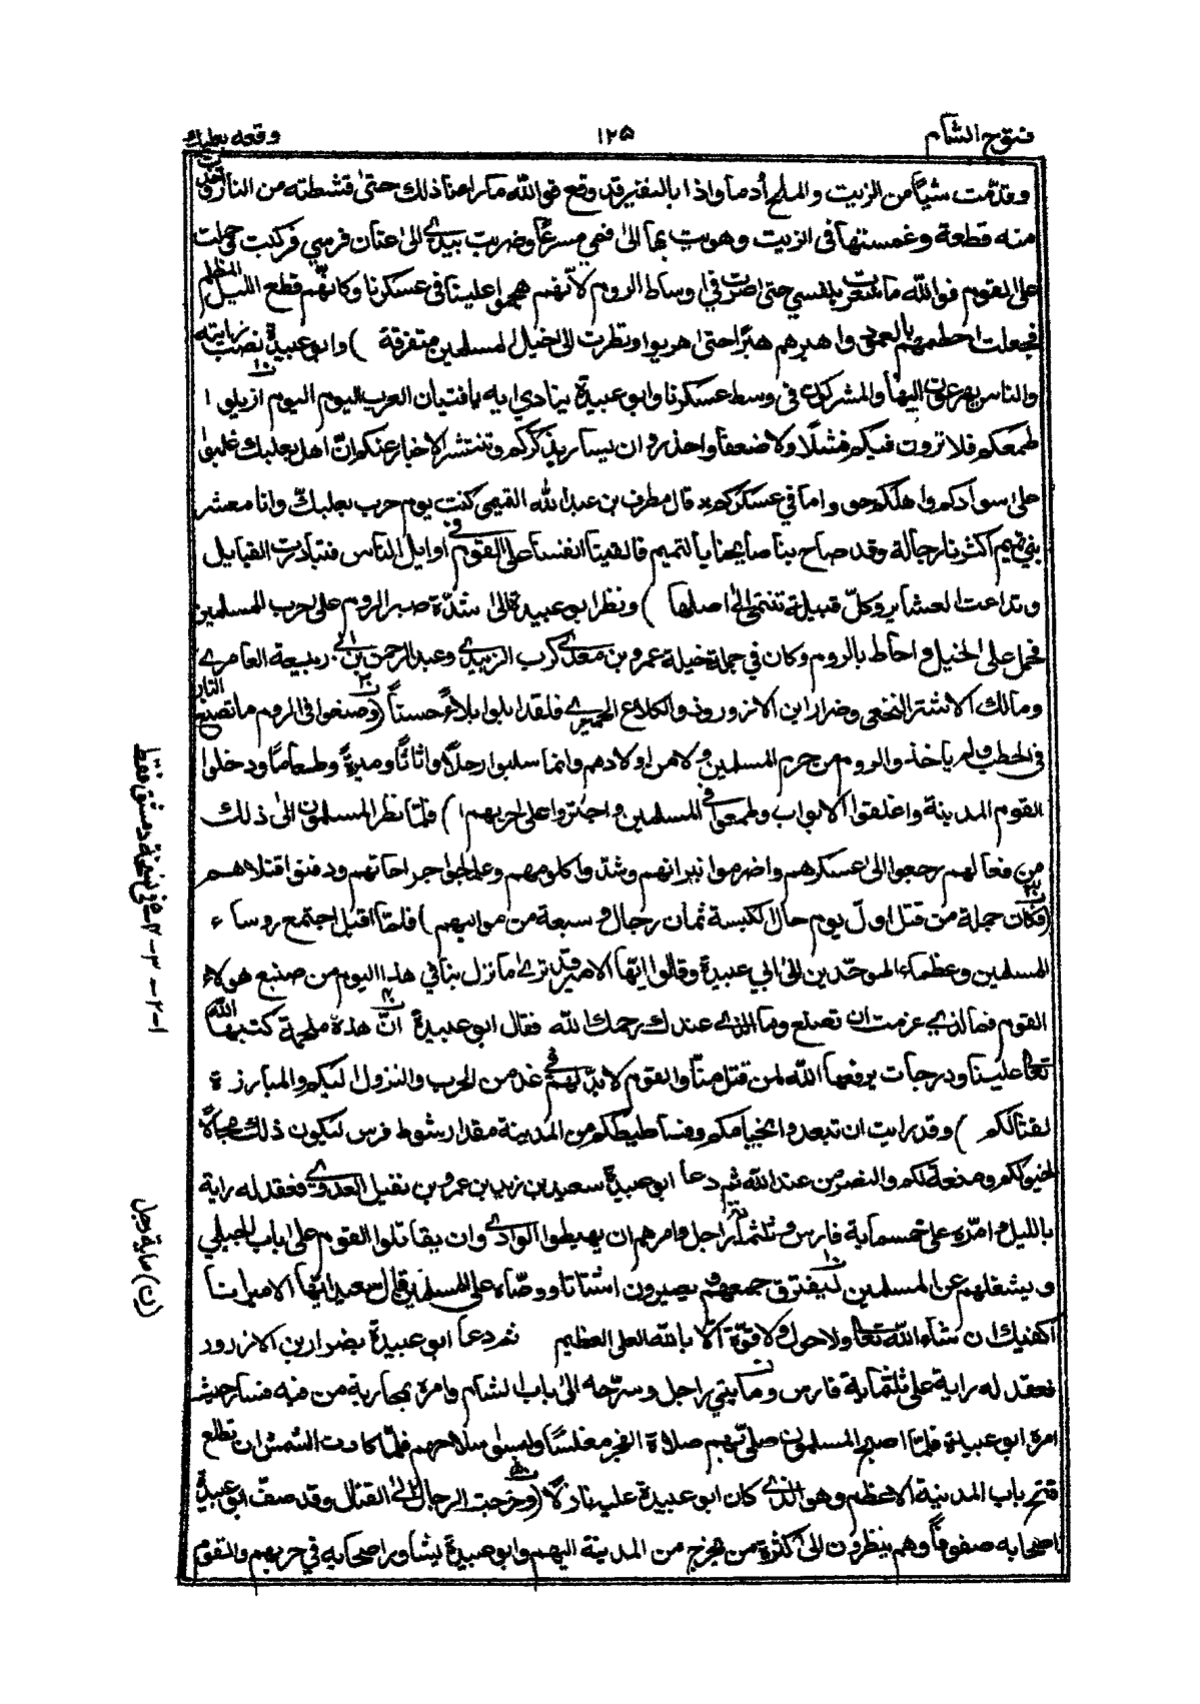 فتوح الشام ١٢٥ وقعه بعلبك
وقدّمت شيأ من الزيت والملح أدما واذا بالنفير قد وقع فوالله ما راعنا ذلك حتى قشطته من النار واخذت
منه قطعة وغمستها فى الزيت وهويت بها الى فمي مسرعاً وضربت بيدي الى عنان فرسي فركبت وحملت
على القوم فوالله ما شعرت بنفسي حتى اصرت في اوساط الروم لانّهم هجموا علينا فى عسكرنا وكانّهم قطع الليل المظلم
فجعلت احطمهم بالعمود واهدهم هبرًا حتى اهربوا ونظرت الى الخيل المسلمين متفرقة ) وابو عبيدة نصب رايته
والناس يهرعون اليها والمشركون فى وسط عسكرنا وابو عبيدة ينادي ايه يافتيان العرب اليوم اليوم ازيلوا
طمعكم فلا تروت فيكم فشلًا ولا ضعفا واحذروا ان يسار بذكركم وتنتشر الاخبار عنكم انّ اهل بعلبك غلبوا
على سوادكم واهلككم وما في عسكركم * قال مطرف بن عبد الله القيمى كنت يوم حرب بعلبكّ وانا معشر
بني تميم اكثرنا رجالة وقد صاح بنا صايحنا يا لتميم فالقينا انفسنا على القوم فى اوايل الناس فتبادرت القبايل
وتداعت العشاير وكلّ قبيلة تنتمى الى اصلها ) ونظر ابو عبيدة الى شدّة صبر الروم على حرب المسلمين
فحمل على الخيل واحاط بالروم وكان في حملة خيله عمرو بن معدي كرب الزبيدي وعبد الرحمن بن ابي ربيعة العامري
ومالك الاشتر النخعي وضرار ابن الازور وذو الكلاع الحميري فلقد ابلوا بلاءً حسناً (وصنعوا فى الروم ما تصنع النار
فى الحطب ولم ياخذ والروم من حرم المسلمين ولا من اولادهم وانما سلبوا رحلًا واثاثاً وميرةً وطعاماً ودخلوا
القوم المدينة واغلقوا الابواب وطمعوا فى المسلمين واجتروا على حربهم) فلمّا نظر المسلمون الى ذلك
من فعالهم رجعوا الى عسكرهم واضرموا نيرانهم وشدّوا كلومهم وعالجوا جراحاتهم ودفنوا قتلاهم
(فكان جملة من قتل اول يوم حال الكبسة ثمان رجال وسبعة من مواليهم) فلمّا اقبل اجتمع روساء
المسلمين وعظماء الموحّدين الى ابي عبيدة وقالوا ايّها الامير قد ترى ما نزل بنا في هذا اليوم من صنيع هولاء
القوم فما الذي عزمت ان تصنع وما الذي عندك رحمك الله فقال ابو عبيدة انّ هذه ملحمة كتبها الله
تعالى علينا ودرجات يرفعها الله لمن قتل منّا والقوم لا بدّ لهم فى غد من الحرب والنزول اليكم والمبارزة
لقتالكم ) وقد رايت ان تبعدوا بخيامكم وفساطيطكم من المدينة مقدار شوط فرس ليكون ذلك مجالًا
لخيولكم ومنعة لكم والنصر من عند الله ثم دعا ابو عبيدة سعيد بن زيد بن عمرو بن نفيل العدوي فعقد له راية
بالليل وامّره على خمسماية فارس وثلثماية راجل وامرهم ان يهبطوا الوادي وان يقاتلوا القوم على باب الجبلي
ويشغلهم عن المسلمين ليفترق جمعهم ويصيرون اشتاتا ووصّاه على المسلمين قال سعيد ايّها الامير انا
اكفيك ان شاء الله تعالى ولا حول ولا قوّة الّا بالله العلى العظيم ثم دعا ابو عبيدة بضرار بن الازرور
فعقد له راية على ثلثماية فارس ومايتي راجل وسرّحه الى باب الشام وامره بمحاربة من فيه فسار حيث
امره ابو عبيدة فلمّا اصبح المسلمون صلّى بهم صلاة الفجر مغلسا ولبسوا سلاحهم فلمّا كادت الشمس ان تطلع
فتح باب المدينة الاعظم وهو الذي كان ابو عبيدة عليه نازلًا (وخرجت الرجال الى القتال وقد صفّ ابو عبيدة
اصحابه صفوفاً وهم ينظرون الى كثرة من يخرج من المدينة اليهم وابو عبيدة يشاور اصحابه في حربهم والقوم
١-٢-٣-٤-٥ في نسخة دمشق فقط
(ن) ماية رجل